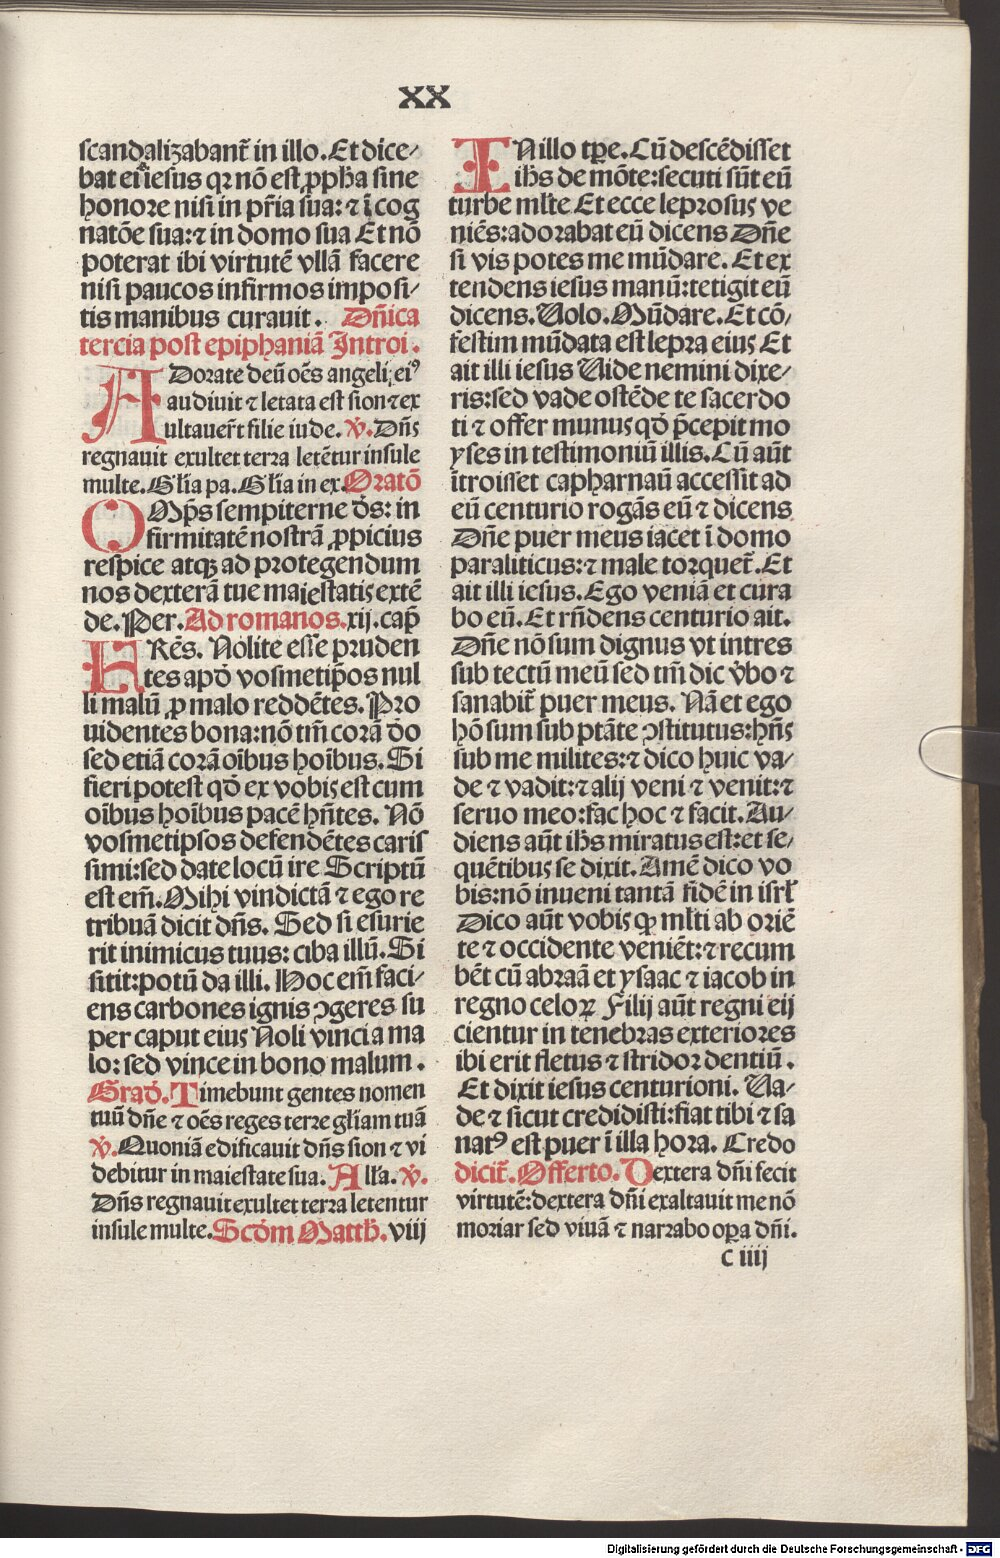 XX
scandalizabant᷑ in illo. Et dice⸗
bat ei iesus qꝛ nõ est ꝓph̃a sine
honore nisi in p̃ria sua: ⁊ ĩ cog
natõe sua: ⁊ in domo sua Et nõ
poterat ibi virtutẽ vllã facere
nisi paucos infirmos imposi⸗
tis manibus curauit. Dñica
tercia post epiphaniã Introi.
ADorate deũ oẽs angeli eiꝰ
audiuit ⁊ letata est sion ⁊ ex
ultauer̃t filie iude. ℣. Dñs
regnauit exultet terra letẽtur insule
multe. Gl̃ia pa. Gl̃ia in ex. Oratõ
OMp̃s sempiterne d̃s: in
firmitatẽ nostrã ꝓpicius
respice atqꝫ ad protegendum
nos dexterã tue maiestatis extẽ
de. Per. Ad romanos. xij. cap̃
FRẽs. Nolite esse pruden
tes apd̃ vosmetip̃os nul
li malũ ꝓ malo reddẽtes. Pro
uidentes bona: nõ tm̃ corã d̃o
sed etiã corã oĩbus hoĩbus. Si
fieri potest qd̃ ex vobis est cum
oĩbus hoĩbus pacẽ hñtes. Nõ
vosmetipsos defendẽtes caris
simi: sed date locũ ire Scriptũ
est em̃. Mihi vindictã ⁊ ego re
tribuã dicit dñs. Sed si esurie
rit inimicus tuus: ciba illũ. Si
sitit: potũ da illi. Hoc em̃ faci⸗
ens carbones ignis ꝯgeres su
per caput eius Noli vinci a ma
lo: sed vince in bono malum.
Grad̃. Timebunt gentes nomen
tuũ dñe ⁊ oẽs reges terre gl̃iam tuã
℣. Quoniã edificauit dñs sion ⁊ vi
debitur in maiestate sua. All̃a. ℣.
Dñs regnauit exultet terra letentur
insule multe. Scd̃m Matth̃. viij
IN illo tꝑe. Cũ descẽdisset
ih̃s de mõte: secuti sũt eũ
turbe ml̃te Et ecce leprosus ve
niẽs: adorabat eũ dicens Dñe
si vis potes me mũdare. Et ex
tendens iesus manũ: tetigit eũ
dicens. Uolo. Mũdare. Et cõ⸗
festim mũdata est lepra eius Et
ait illi iesus Uide nemini dixe⸗
ris: sed vade ostẽde te sacerdo
ti ⁊ offer munus qd̃ p̃cepit mo
yses in testimoniũ illis. Cũ aũt
ĩtroisset capharnaũ accessit ad
eũ centurio rogãs eũ ⁊ dicens
Dñe puer meus iacet ĩ domo
paraliticus: ⁊ male torquet᷑. Et
ait illi iesus. Ego veniã et cura
bo eũ. Et rñdens centurio ait.
Dñe nõ sum dignus vt intres
sub tectũ meũ sed tm̃ dic ṽbo ⁊
sanabit᷑ puer meus. Nã et ego
hõ sum sub ptãte ꝯstitutus: hñs
sub me milites: ⁊ dico huic va⸗
de ⁊ vadit: ⁊ alij veni ⁊ venit: ⁊
seruo meo: fac hoc ⁊ facit. Au⸗
diens aũt ih̃s miratus est: et se⸗
quẽtibus se dixit. Amẽ dico vo
bis: nõ inueni tantã fidẽ in isrl̃
Dico aũt vobis ꝙ ml̃ti ab oriẽ
te ⁊ occidente veniẽt: ⁊ recum
bẽt cũ abraã et ysaac ⁊ iacob in
regno celoꝝ Filij aũt regni eij
cientur in tenebras exteriores
ibi erit fletus ⁊ stridor dentiũ.
Et dixit iesus centurioni. Ua⸗
de ⁊ sicut credidisti: fiat tibi ⁊ sa
natꝰ est puer ĩ illa hora. Credo
dicit᷑. Offerto. Dextera dñi fecit
virtutẽ: dextera dñi exaltauit me nõ
moriar sed viuã ⁊ narrabo oꝑa dñi.
c iiij
Digitalisierung gefördert durch die Deutsche Forschungsgemeinschaft - DFG